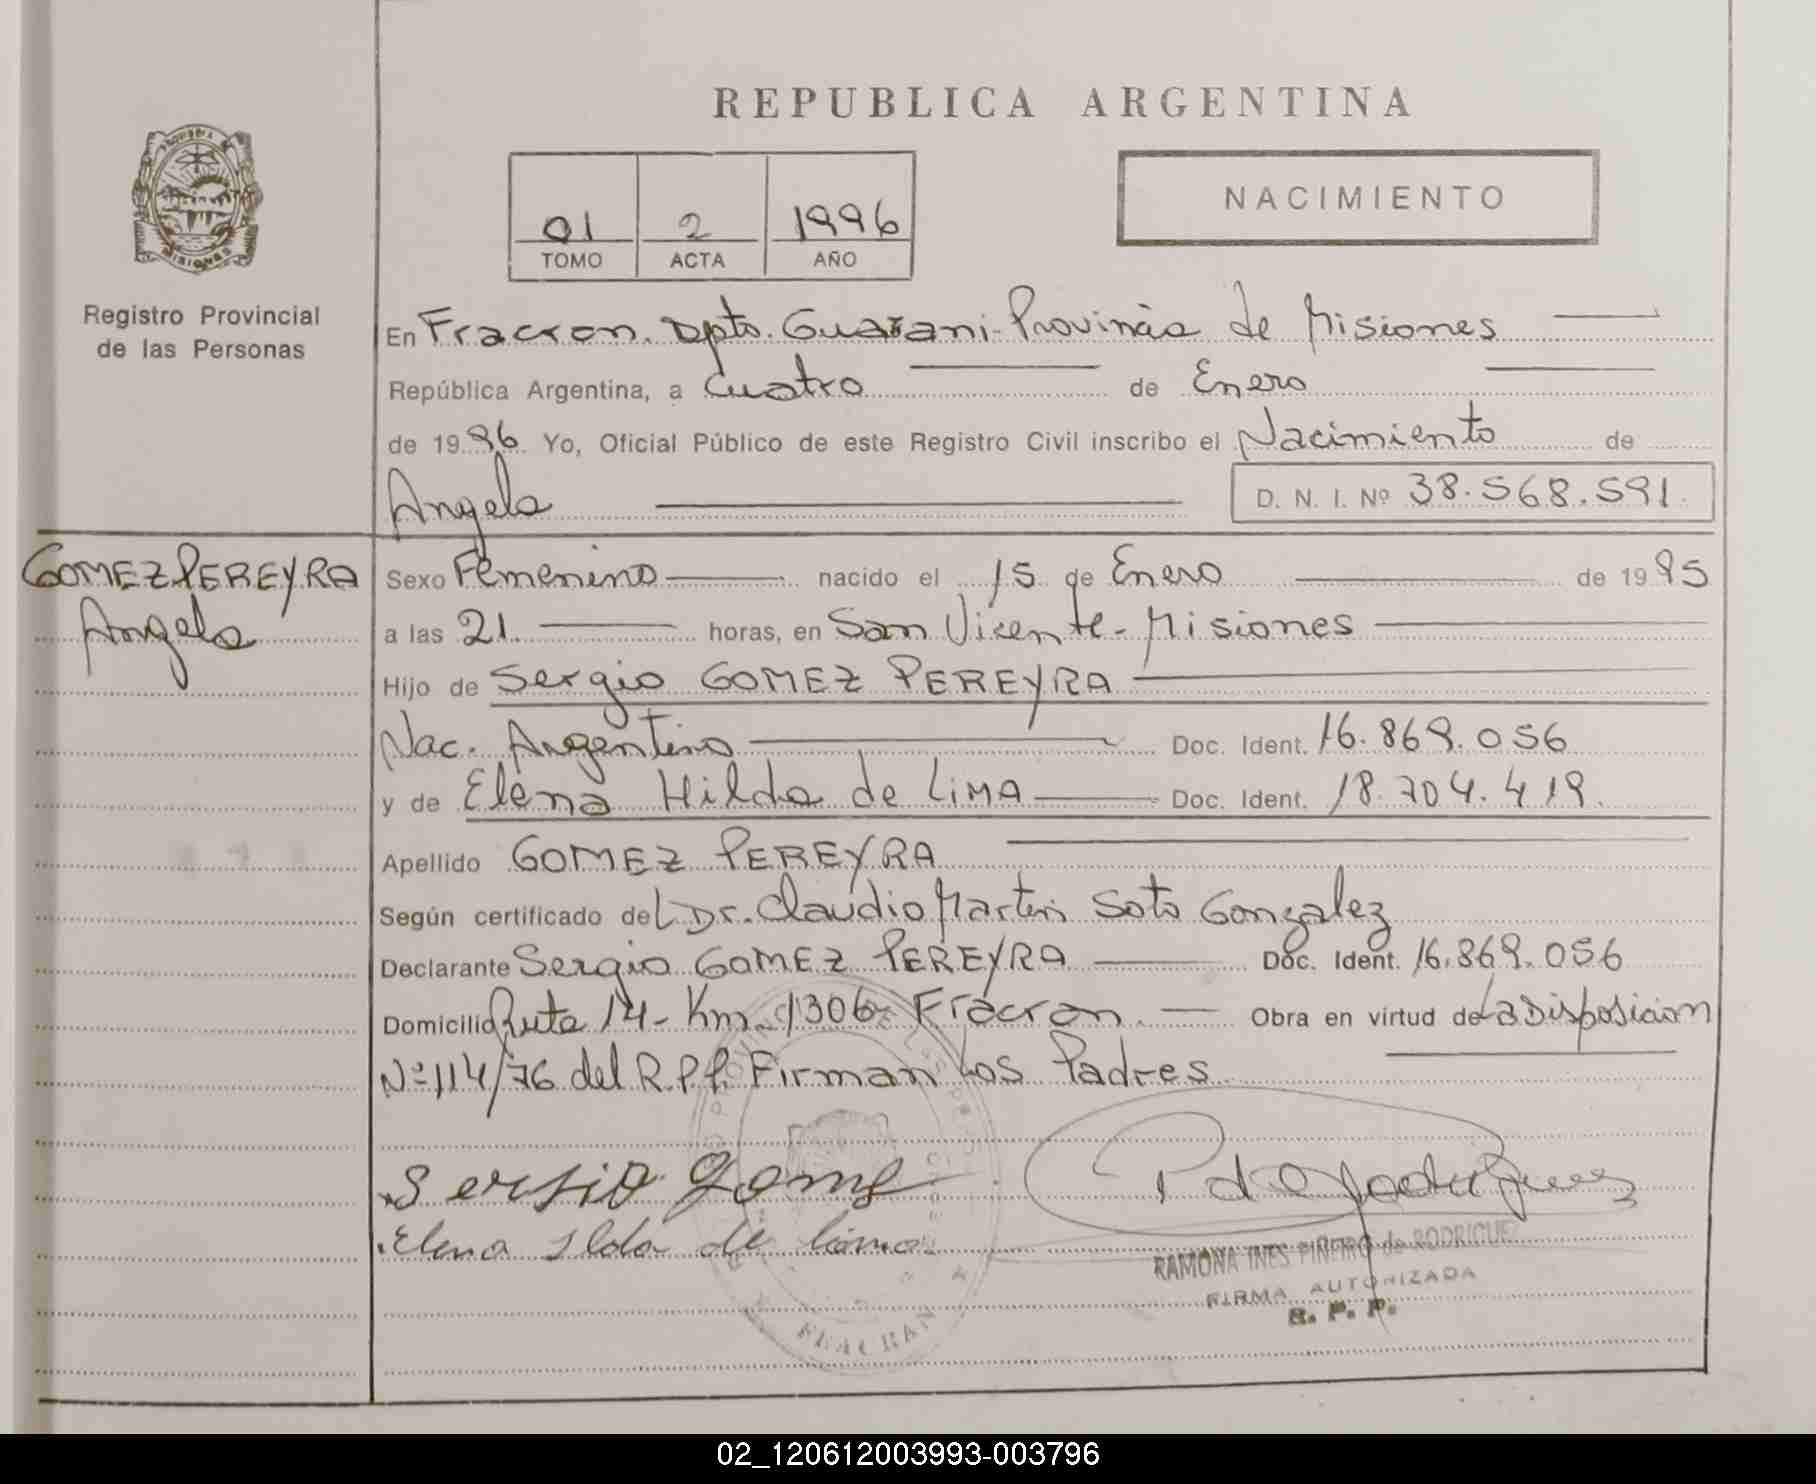 REPUBLICA ARGENTINA
NACIMIENTO
01 2 1996
TOMO ACTA AÑO
Registro Provincial
de las Personas
En Fracran. Dpto. Guarani- Provincia de Misiones
República Argentina, a Cuatro de Enero
de 1996 Yo, Oficial Público de este Registro Civil inscribo el Nacimiento de
Angela D. N. I. Nº 38.568.591.
GOMEZ PEREYRA
Angela
Sexo Femenino nacido el 15 de Enero de 1995
a las 21. horas, en San Vicente- Misiones
Hijo de Sergio GOMEZ PEREYRA
Nac. Argentino Doc. Ident. 16.869.056
y de Elena Hilda de LIMA Doc. Ident. 18.704.419.
Apellido GOMEZ PEREYRA
Según certificado del Dr. Claudio Martin Soto Gonzalez
Declarante Sergio GOMEZ PEREYRA Doc. Ident. 16.869.056
Domicilio Ruta 14- Km. 1306- Fracran. Obra en virtud de La Disposicion
Nº 114/76 del R.P.P. Firman Los Padres
Sersio Gome
Elena Ilda de lima
RAMONA INES PIÑEIRO de RODRIGUEZ
FIRMA AUTORIZADA
R. P. P.
FRACRAN
02_120612003993-003796